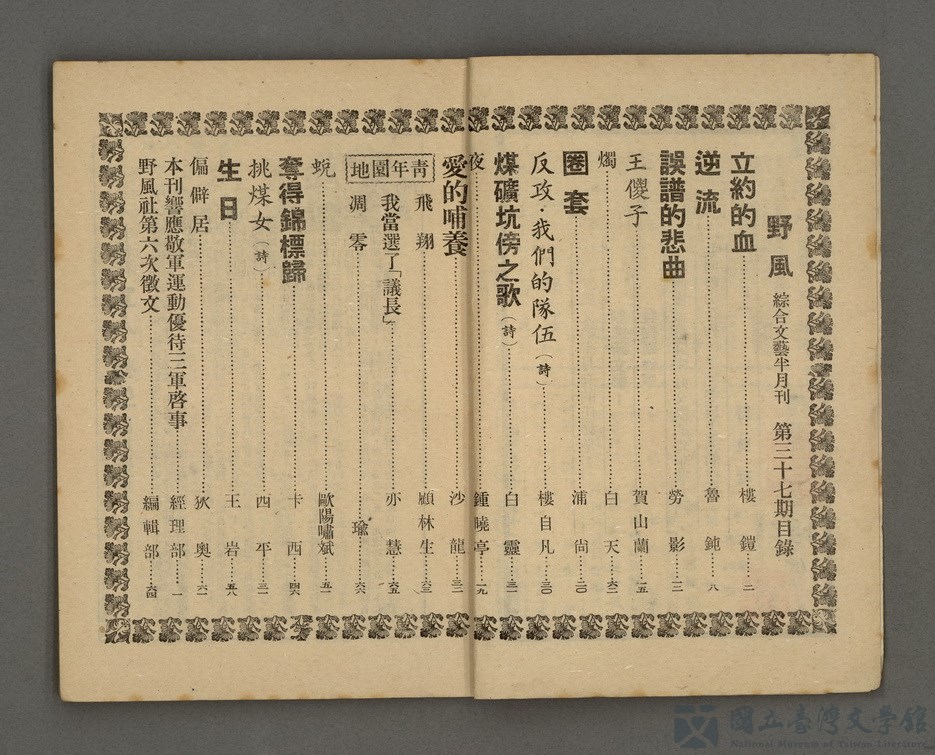 野風 綜合文藝半月刊 第三十七期目錄
立約的血 樓鎧 二
逆流 魯鈍 八
誤譜的悲曲 勞影 一二
王儍子 賀山蘭 一五
燭 白天 六二
圈套 浦尙 二〇
反攻·我們的隊伍(詩) 樓自凡 三〇
煤礦坑傍之歌(詩) 白靈 三一
夜 鍾曉亭 一九
愛的哺養 沙龍 三二
青年園地
飛翔 顧林生 六三
我當選了「議長」 亦慧 六五
凋零 瑜 六六
蛻 歐陽嘯斌 五一
奪得錦標歸 卡西 四六
挑煤女(詩) 西平 三一
生日 王岩 五八
偏僻居 狄奧 六一
本刊響應敬軍運動優待三軍啓事 經理部 一
野風社第六次徵文 編輯部 六四
國立臺灣文學館
National Museum of Taiwan Literature